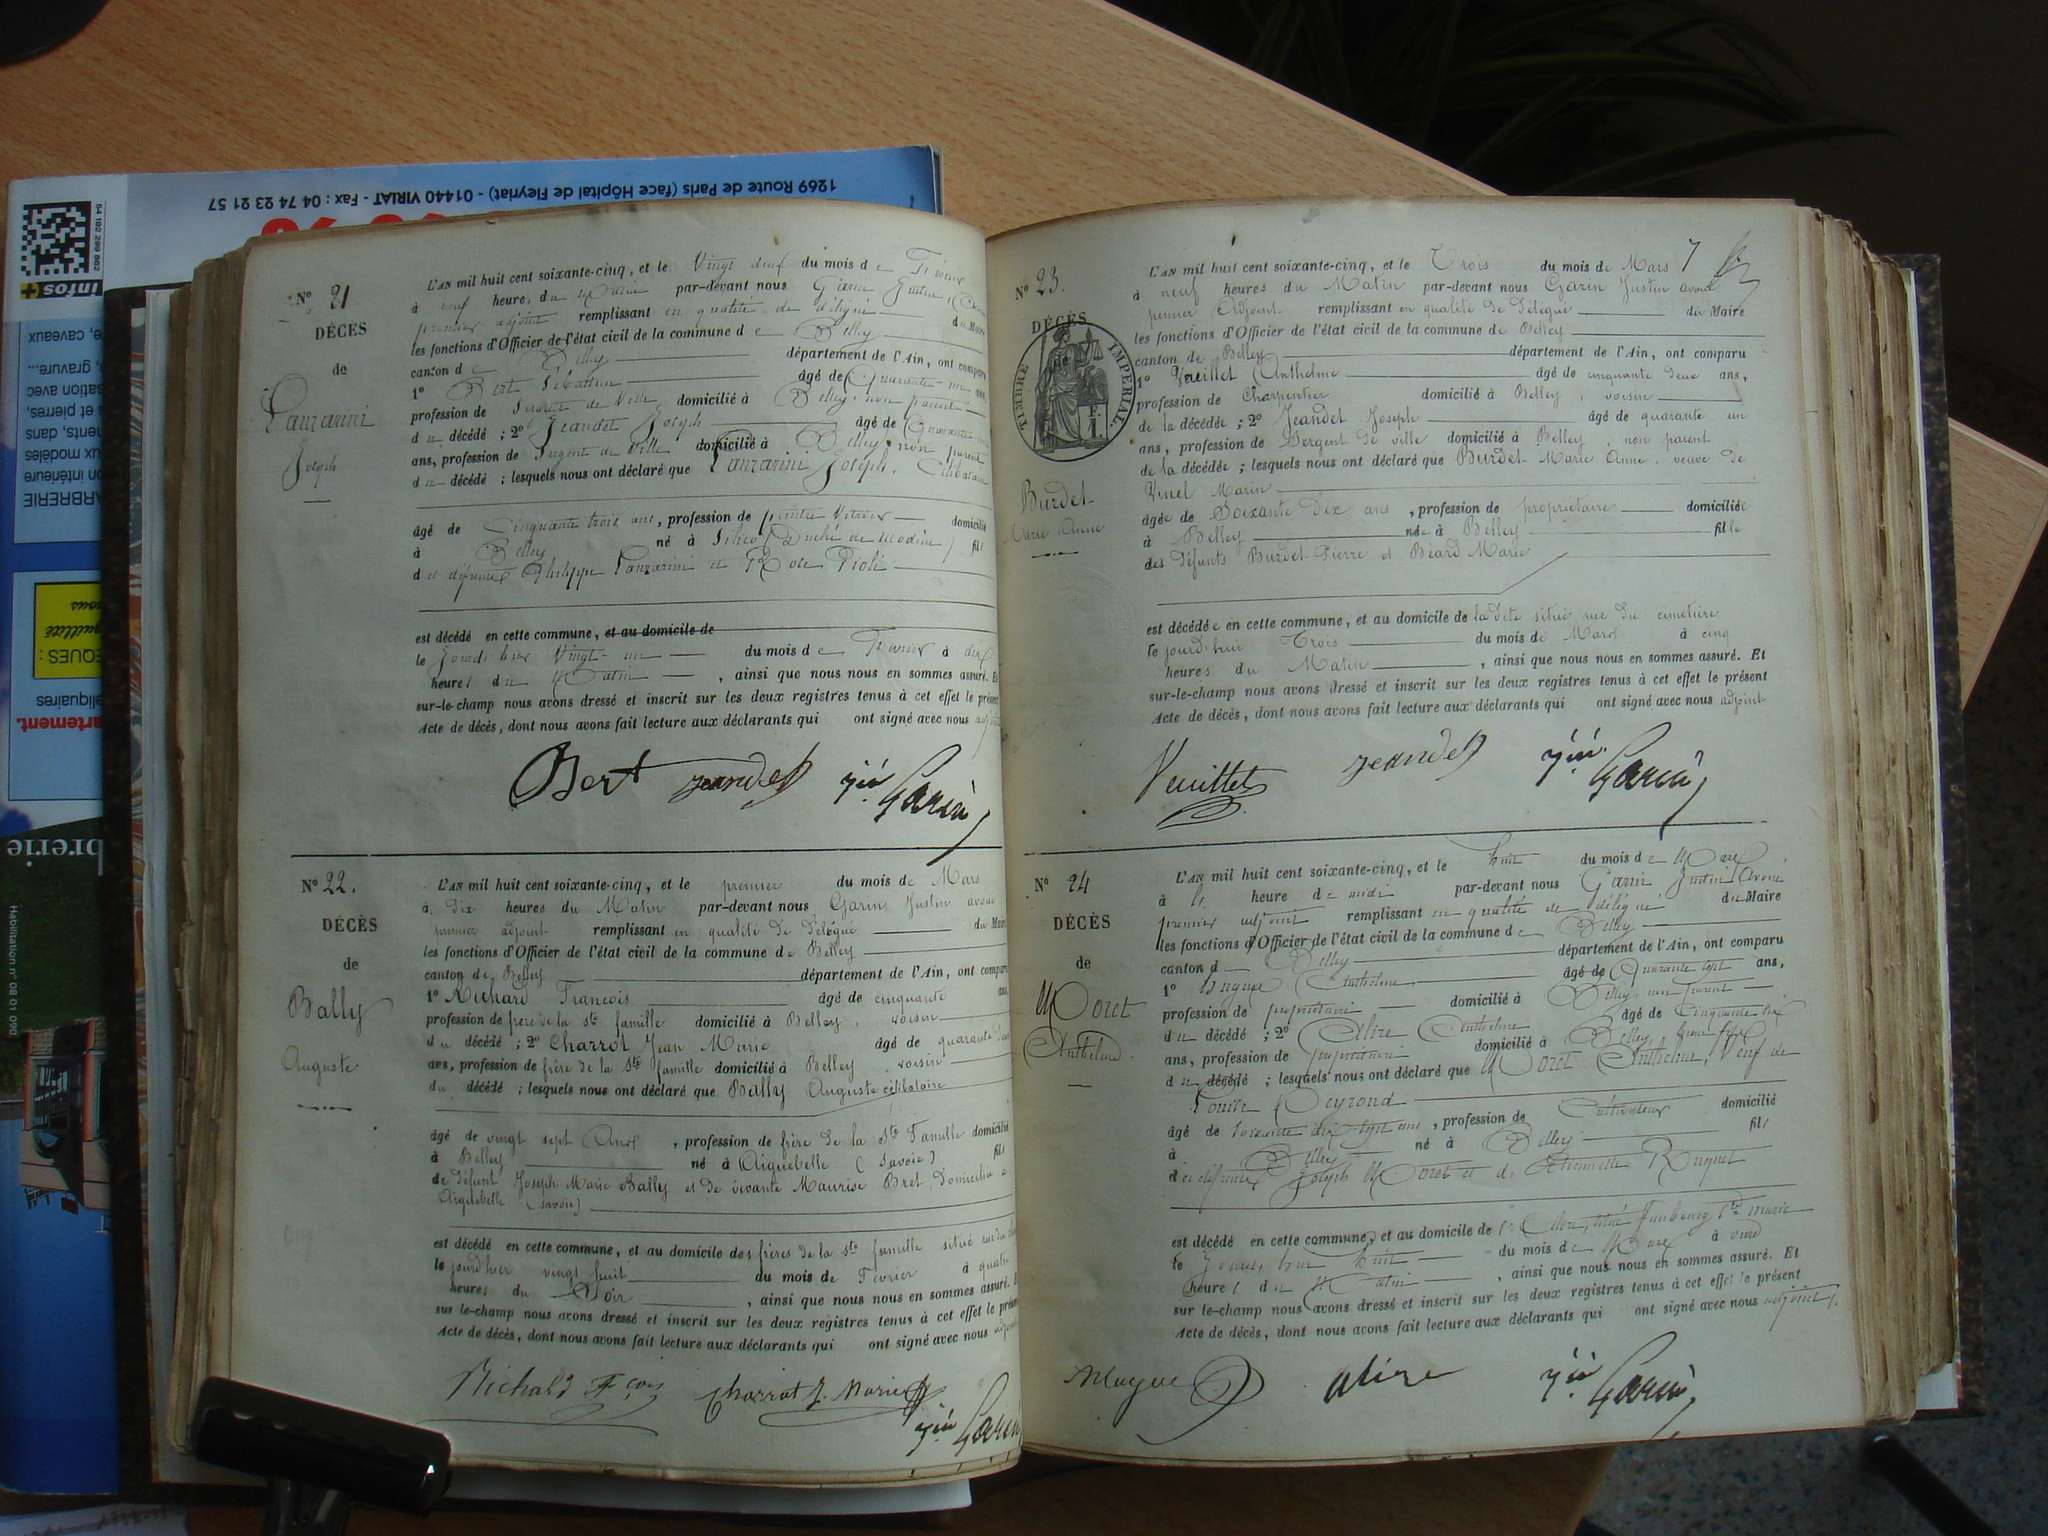 1269 Route de Paris (face Hôpital de Fleyriat) - 01440 VIRIAT - Fax : 04 74 23 21 57
infos
Habilitation n° 08 01 090
N° 21
DÉCES
de
Lanzarini
Joseph
L'AN mil huit cent soixante-cinq, et le Vingt deux du mois de Février
à neuf heures du Matin par-devant nous Garin Justin
premier adjoint remplissant en qualité de délégué du Maire
les fonctions d'Officier de l'état civil de la commune de Belley
canton de Belley département de l'Ain, ont comparu
1° Bert Sébastien âgé de Quarante un ans,
profession de Sergent de Ville domicilié à Belley, non parent
du décédé ; 2° Jeandet Joseph âgé de Quarante un
ans, profession de Sergent de Ville domicilié à Belley non parent
du décédé ; lesquels nous ont déclaré que Lanzarini Joseph. Célibataire
âgé de Cinquante trois ans, profession de peintre vitrier domicilié
à Belley né à (Duché de Modène) fils
de défunts Philippe Lanzarini et Rose Pioli
est décédé en cette commune, et au domicile de
le jourd'hier Vingt-un du mois de Février à dix
heures du Matin, ainsi que nous nous en sommes assuré. Et
sur-le-champ nous avons dressé et inscrit sur les deux registres tenus à cet effet le présent
Acte de décès, dont nous avons fait lecture aux déclarants qui ont signé avec nous adjoint
Bert Jeandet Garin
N° 22.
DÉCÈS
de
Bally
Auguste
L'AN mil huit cent soixante-cinq, et le premier du mois de Mars
à dix heures du Matin par-devant nous Garin Justin avoué
premier adjoint remplissant en qualité de Délégué du Maire
les fonctions d'Officier de l'état civil de la commune de Belley
canton de Belley département de l'Ain, ont comparu
1° Richard François âgé de cinquante ans,
profession de frère de la Ste famille domicilié à Belley, voisin
du décédé ; 2° Charrot Jean Marie âgé de quarante
ans, profession de frère de la Ste famille domicilié à Belley voisin
du décédé ; lesquels nous ont déclaré que Bally Auguste célibataire
âgé de vingt sept Ans, profession de frère de la Ste Famille domicilié
à Belley né à Aiguebelle (Savoie) fils
de défunt Joseph Marie Bally et de vivante Maurise Bret Domiciliée à
Aiguebelle (Savoie)
est décédé en cette commune, et au domicile des frères de la Ste famille situé
le jourd'hier vingt huit du mois de Février à quatre
heures du Soir, ainsi que nous nous en sommes assuré. Et
sur le-champ nous avons dressé et inscrit sur les deux registres tenus à cet effet le présent
Acte de décès, dont nous avons fait lecture aux déclarants qui ont signé avec nous adjoint
Richard Fçois Charrot J. Marie Garin
N° 23.
DÉCÈS
TIMBRE IMPERIAL
Burdet
Marie Anne
L'AN mil huit cent soixante-cinq, et le Trois du mois de Mars
à neuf heures du Matin par-devant nous Garin Justin avoué
premier Adjoint remplissant en qualité de Délégué du Maire
les fonctions d'Officier de l'état civil de la commune de Belley
canton de Belley département de l'Ain, ont comparu
1° Vueillet Anthelme âgé de cinquante deux ans,
profession de Charpentier domicilié à Belley, voisin
de la décédée ; 2° Jeandet Joseph âgé de quarante un
ans, profession de Sergent de ville domicilié à Belley, non parent
de la décédée ; lesquels nous ont déclaré que Burdet Marie Anne, veuve de
Vinel Marin
âgée de Soixante Dix ans, profession de propriétaire domiciliée
à Belley née à Belley fille
des Défunts Burdet Pierre et Béard Marie
est décédée en cette commune, et au domicile de la dite situé rue du cimetière
le jourd'hui Trois du mois de Mars à cinq
heures du Matin, ainsi que nous nous en sommes assuré. Et
sur-le-champ nous avons dressé et inscrit sur les deux registres tenus à cet effet le présent
Acte de décès, dont nous avons fait lecture aux déclarants qui ont signé avec nous adjoint
Vueillet Jeandet Garin
N° 24
DÉCÈS
de
Moret
Anthelme
L'AN mil huit cent soixante-cinq, et le huit du mois de Mars
à heure de midi par-devant nous Garin Justin Avoué
premier adjoint remplissant en qualité de délégué du Maire
les fonctions d'Officier de l'état civil de la commune de Belley
canton de Belley département de l'Ain, ont comparu
1° Anthelme âgé de Quarante sept ans,
profession de propriétaire domicilié à Belley, non parent
du décédé ; 2° Alire Anthelme âgé de Cinquante six
ans, profession de propriétaire domicilié à Belley,
du décédé ; lesquels nous ont déclaré que Moret Anthelme, Veuf de
Louise Peyrond
âgé de soixante dix sept ans, profession de Cultivateur domicilié
à Belley né à Belley fils
des défunts Joseph Moret et de Etiennette Ruquet
est décédé en cette commune, et au domicile de Alire, situé Faubourg Ste Marie
le Jourd'hui huit du mois de Mars à
heures du Matin, ainsi que nous nous en sommes assuré. Et
sur le-champ nous avons dressé et inscrit sur les deux registres tenus à cet effet le présent
Acte de décès, dont nous avons fait lecture aux déclarants qui ont signé avec nous adjoint
Alire Garin